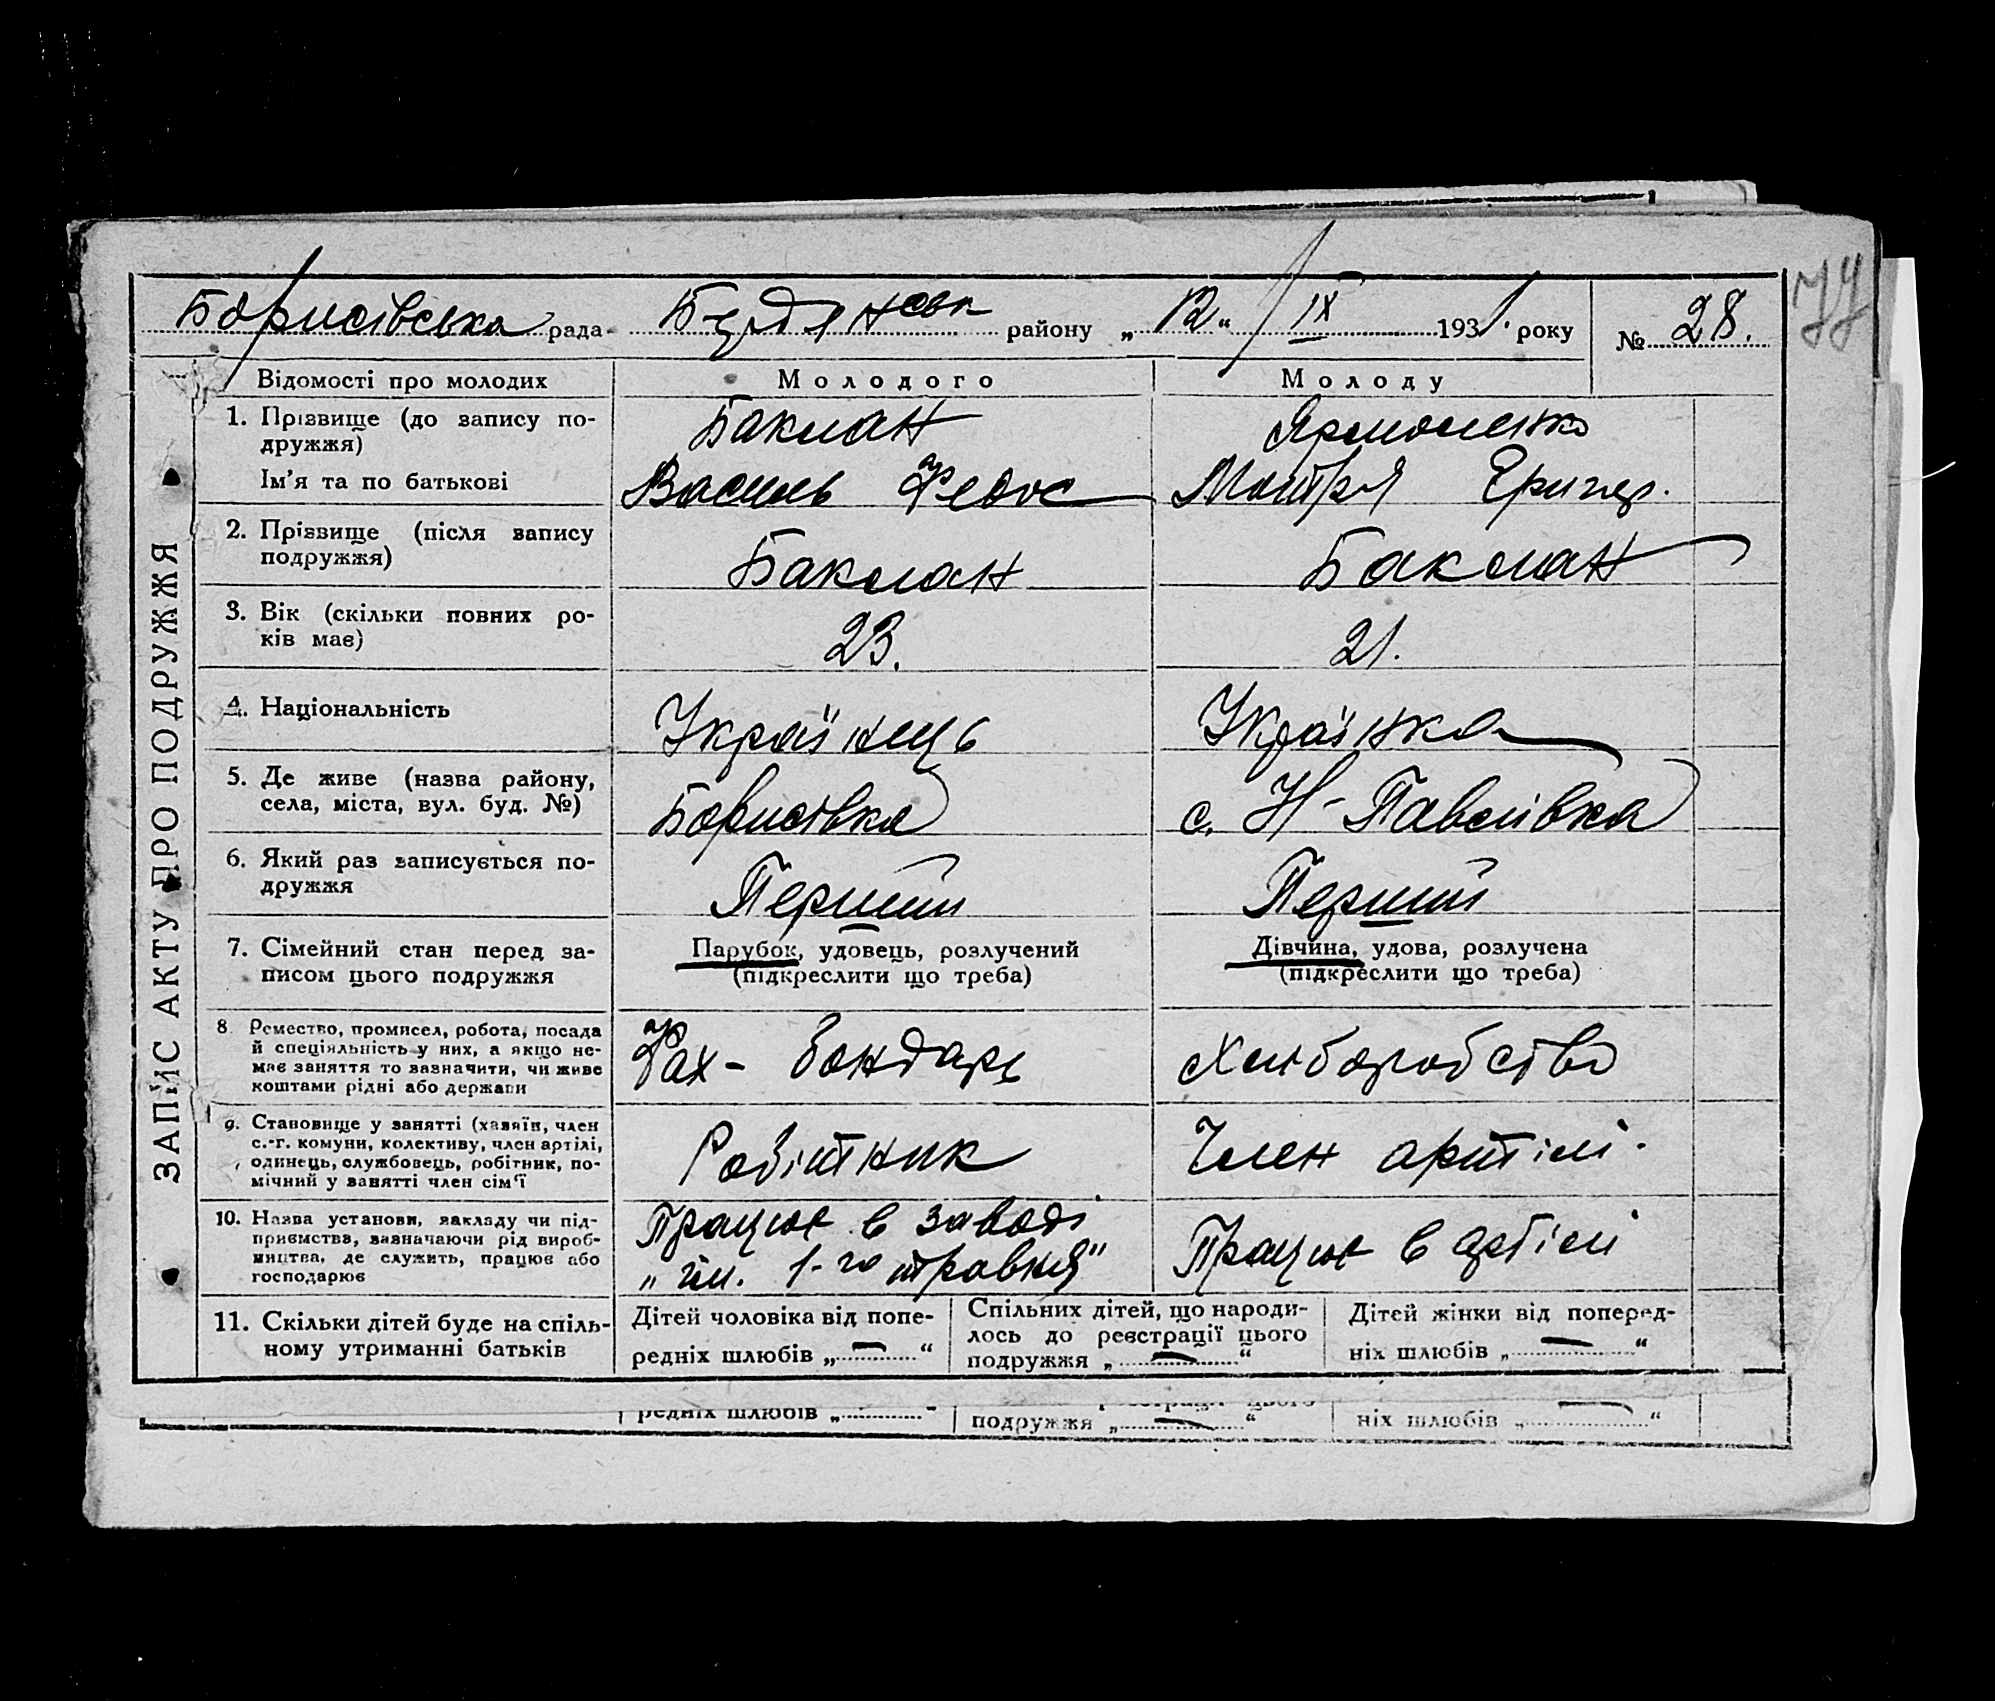 Борисівська рада Бердянськ району „12“ IX 1931 року № 28.
ЗАПИС АКТУ ПРО ПОДРУЖЖЯ
Відомості про молодих Молодого Молоду
1. Прізвище (до запису по- Баклан Ярмоленко
дружжя)
Ім'я та по батькові Василь Федос Мотря Григор.
2. Прізвище (після запису Баклан Баклан
подружжя)
3. Вік (скільки повних ро- 23. 21.
ків має)
4. Національність Українець Українка
5. Де живе (назва району, Борисівка с. Н-Павлівка
села, міста, вул. буд. №)
6. Який раз записується по- Перший Перший
дружжя
7. Сімейний стан перед за- Парубок, удовець, розлучений Дівчина, удова, розлучена
писом цього подружжя (підкреслити що треба) (підкреслити що треба)
8. Ремество, промисел, робота, посада Фах - бондарь Хліборобство
й спеціяльність у них, а якщо не-
має заняття то зазначити, чи живе
коштами рідні або держави
9. Становище у занятті (хазяїн, член Робітник Член артілі.
с.-г. комуни, колективу, член артілі,
одинець, службовець, робітник, по-
мічний у занятті член сім'ї
10. Назва установи, закладу чи під- Працює в заводі Працює в артілі
приємства, зазначаючи рід вироб- „ім. 1-го травня"
ництва, де служить, працює або
господарює
11. Скільки дітей буде на спіль- Дітей чоловіка від попе- Спільних дітей, що народи- Дітей жінки від поперед-
ному утриманні батьків редніх шлюбів „—“ лось до реєстрації цього ніх шлюбів „—“
подружжя „—“
редніх шлюбів „ “ подружжя „—“ ніх шлюбів „—“